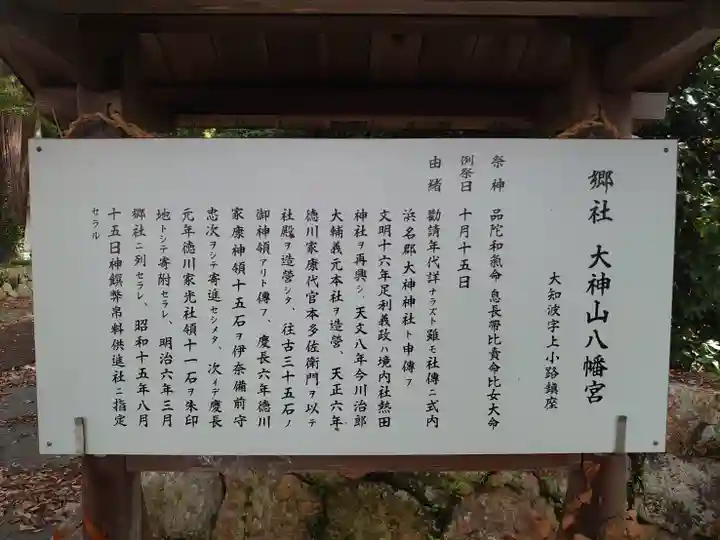 郷社 大神山八幡宮
大知波字上小路鎮座
祭神 品陀和氣命 息長帶比賣命比女大命
例祭日 十月十五日
由緒 勸請年代詳ナラズト雖モ社傳ニ式内
浜名郡大神神社ト申傳フ
文明十六年足利義政ハ境内社熱田
神社ヲ再興シ、天文八年今川治郎
大輔義元本社ヲ造營、天正六年
徳川家康代官本多佐衛門ヲ以テ
社殿ヲ造營シタ、往古三十五石ノ
御神領アリト傳フ、慶長六年徳川
家康神領十五石ヲ伊奈備前守
忠次ヲシテ寄進セシメタ、次イデ慶長
元年徳川家光社領十一石ヲ朱印
地トシテ寄附セラレ、明治六年三月
郷社ニ列セラレ、昭和十五年八月
十五日神饌幣帛料供進社ニ指定
セラル